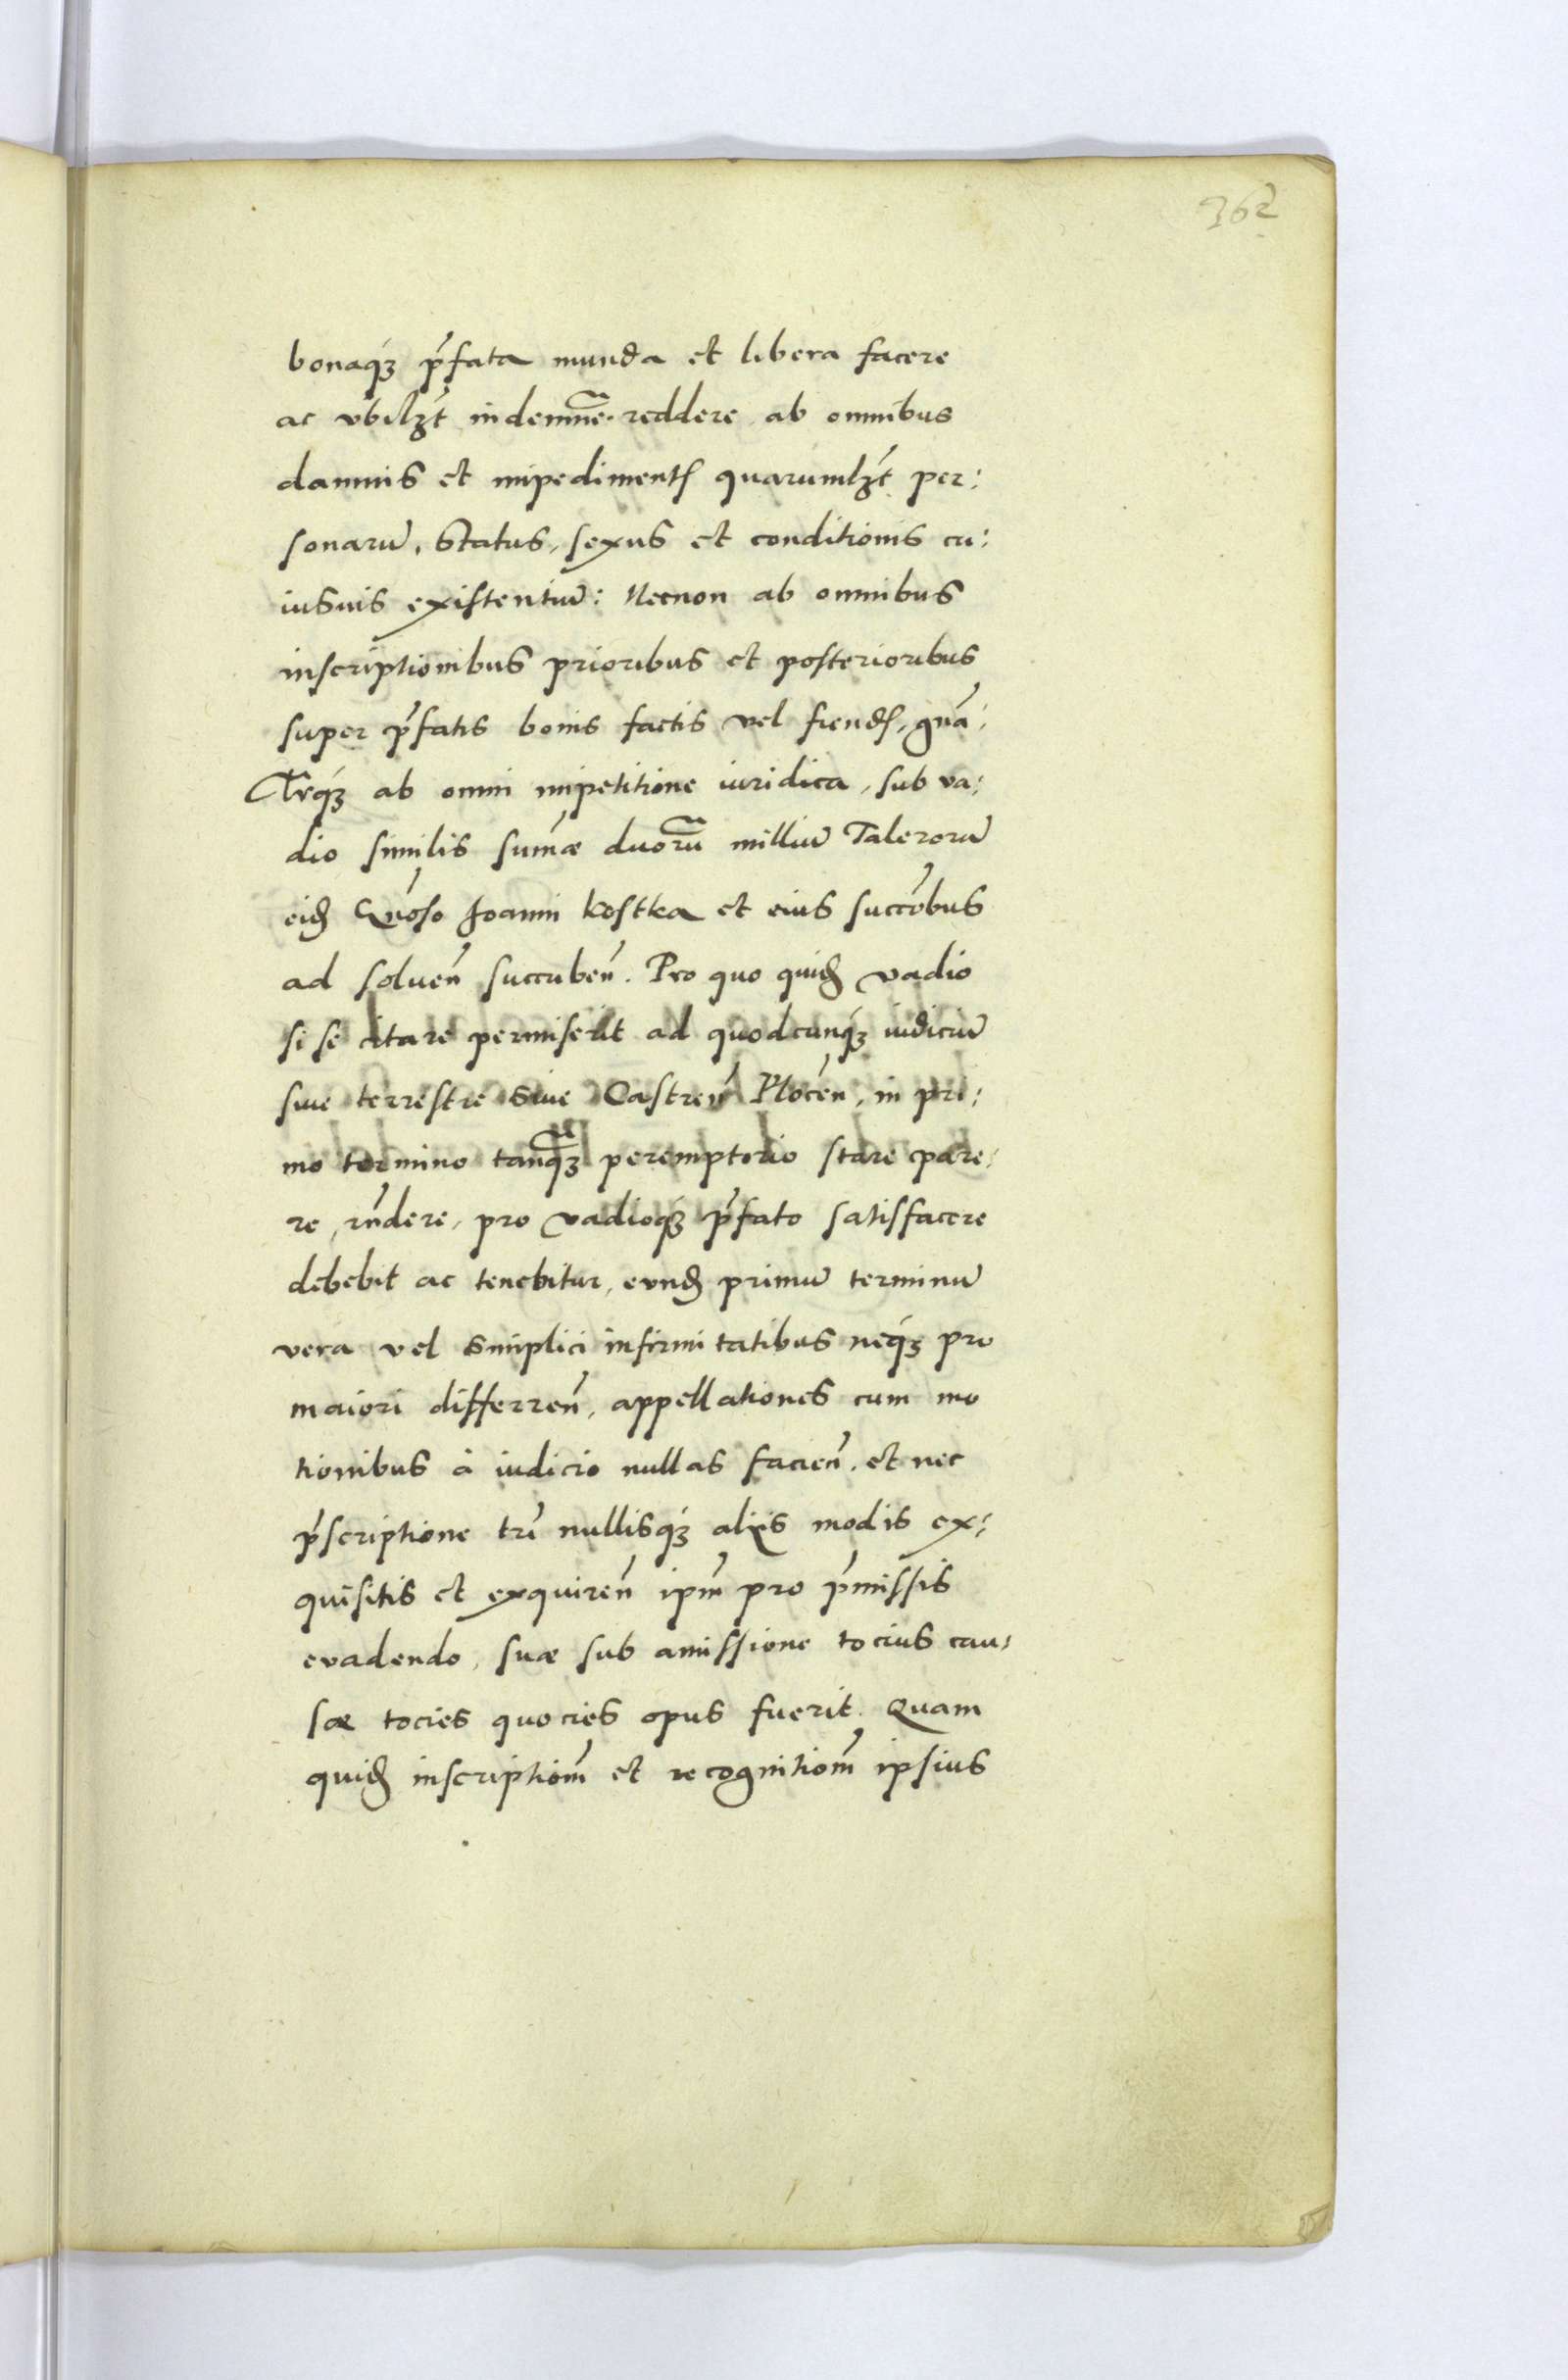 362
bonaqꝫ p̃fata munda et libera facere
ac vbilꝫt indemne reddere ab omnibus
damnis et impedimentꝭ quarumlꝫt per:
sonarũ, Status, sexus et conditionis cu:
iusuis existentiũ: Necnon ab omnibus
inscriptionibus prioribus et posterioribus
super p̃fatis bonis factis vel fiendꝭ, gnã:
Trqꝫ ab omni impetitione iuridica, sub va:
dio similis sum̃æ duorũ milliũ Talerorũ
eid̃ Gñoso Joanni Kostka et eius succr̃bus
ad soluen̄ succuben̄. Pro quo quid̃ vadio
si se citare permiserit ad quodcunqꝫ iudiciũ
siue terrestre siue Castren̄ Plocen̄, in pri:
mo termino tanqꝫ peremptorio stare pare:
re, rñdere, pro vadioqꝫ p̃fato satisfacere
debebit ac tenebitur, eund̃ primũ terminũ
vera vel simplici infirmitatibus neqꝫ pro
maiori differren̄, appellationes cum mo
tionibus à iudicio nullas facien̄. et nec
p̃scriptione trĩ nullisqꝫ alijs modis ex:
quisitis et exquiren̄ ip̃m pro p̃missis
euadendo, suæ sub amissione tocius cau:
sæ tocies quocies opus fuerit. Quam
quid̃ inscription̄m et recognition̄m ipsius